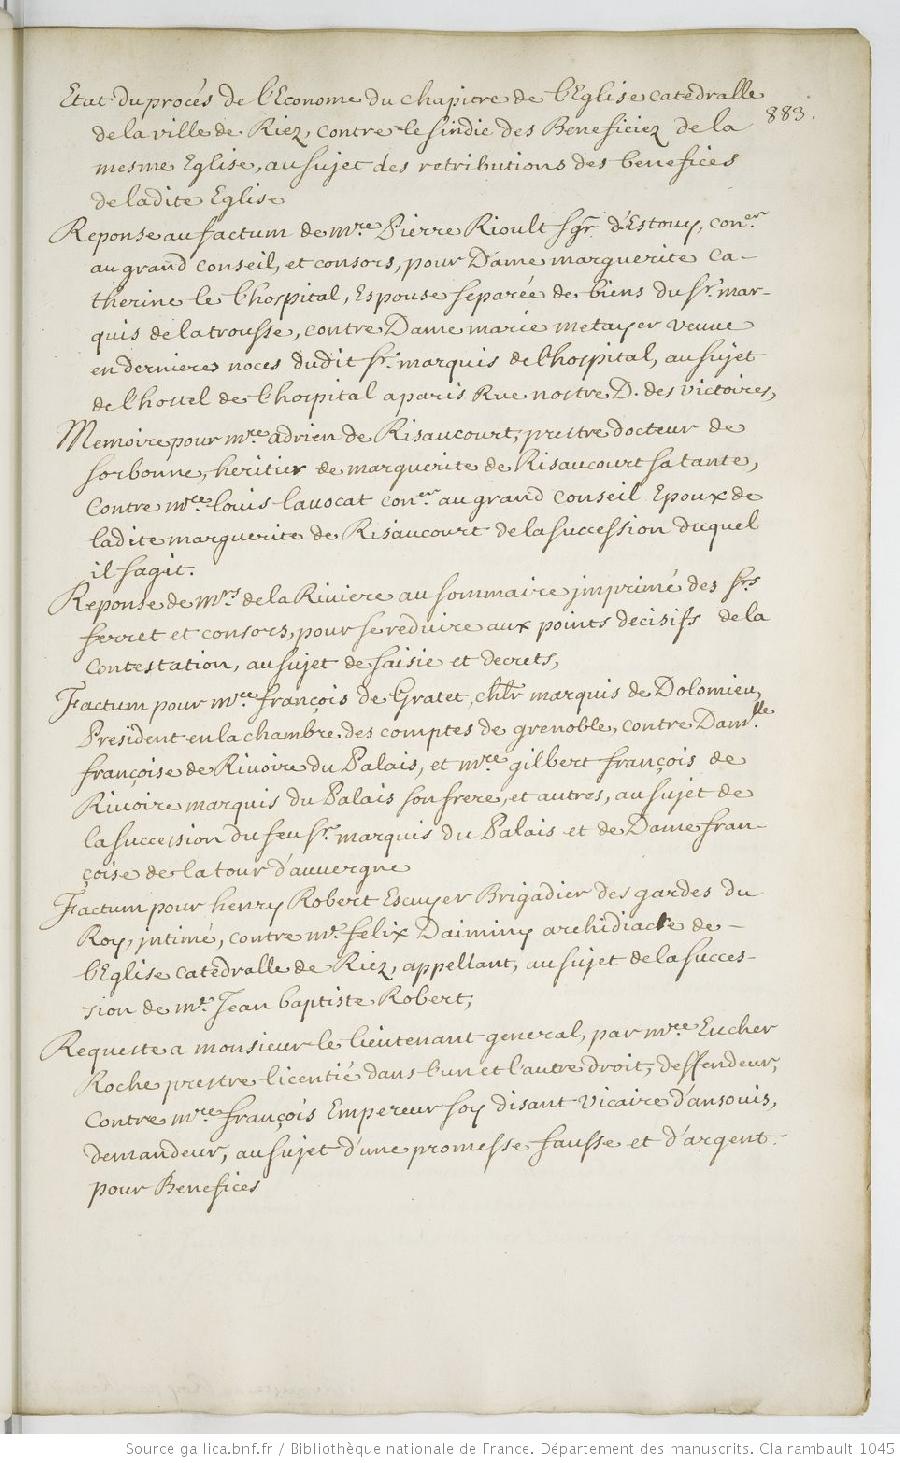 Etat du procés de l'Econome du chapitre de l'Eglise catedralle
883.
de la ville de Riez, contre le sindic des Beneficiez de la
mesme Eglise, au sujet des retributions des benefices
de ladite Eglise
Reponse au factum de mre. Pierre Rioult sgr. d'Estouy, coner.
au grand Conseil, et consors, pour Dame marguerite Ca-
therine le l'hospital, Espouse separée de biens du sr. mar-
quis de la trousse, contre Dame marie metayer veuve
en dernieres noces dudit sr. marquis de l'hospital, au sujet
de l'hostel de l'hospital a paris Rue nostre D. des victoires,
Memoire pour mre. adrien de Risaucourt, prestre docteur de
sorbonne, heritier de marguerite de Risaucourt sa tante,
Contre mre. louis lavocat coner. au grand Conseil Epoux de
ladite marguerite de Risaucourt de la succession duquel
il sagit.
Reponse de mrs. de la Riviere au sommaire imprimé des srs
ferret et consors, pour se reduire aux points decisifs de la
Contestation, au sujet de saisie et decrets,
Factum pour mre. françois de Gratet, chlr marquis de Dolomieu,
President en la chambre des comptes de grenoble, contre Damlle.
françoise de Rivoire du Palais, et mre. gilbert françois de
Rivoire marquis du Palais son frere, et autres, au sujet de
la succession du feu sr. marquis du Palais et de Dame fran-
çoise de la tour d'auvergne
Factum pour henry Robert Escuyer Brigadier des gardes du
Roy, intimé, contre me. felix Daiminy archidiacre de -
l'Eglise catedralle de Riez, appellant, au sujet de la succes-
sion de me. Jean baptiste Robert,
Requeste a monsieur le lieutenant general, par mre. Eucher
Roche prestre licentié dans l'un et l'autre droit, deffendeur,
Contre mre. françois Empereur soy disant Vicaire d'ansouis,
demandeur, au sujet d'une promesse fausse et d'argent
pour Benefices
Source gallica.bnf.fr / Bibliothèque nationale de France. Département des manuscrits. Clairambault 1045